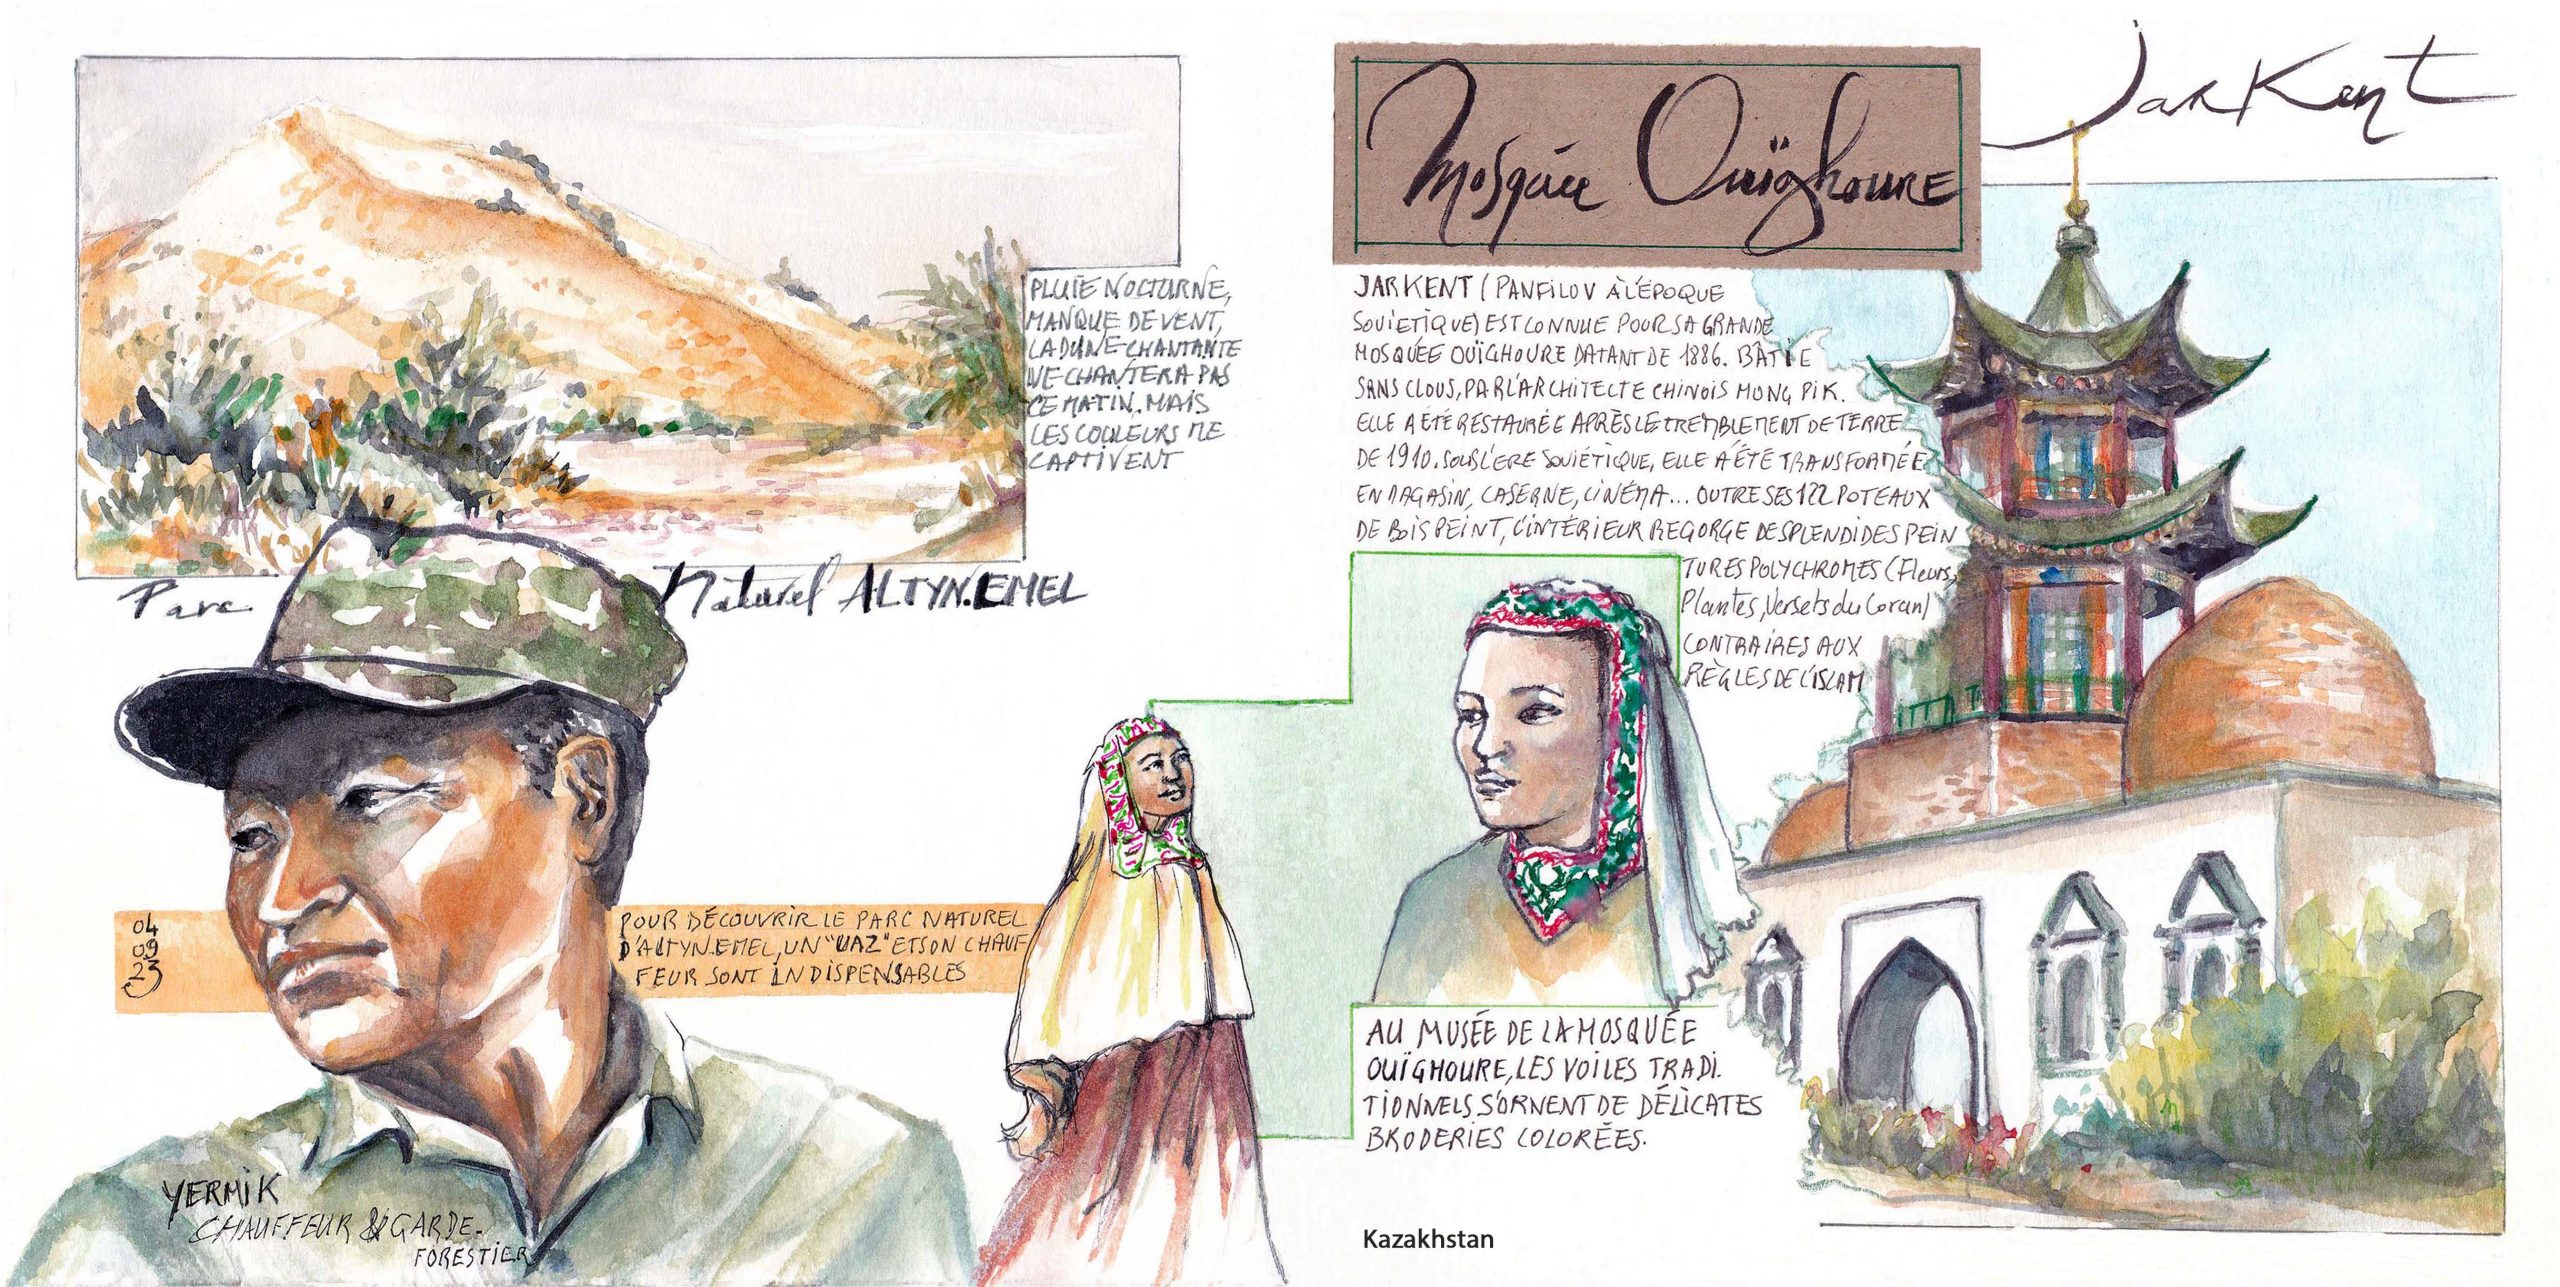 PLUIE NOCTURNE,
MANQUE DE VENT,
LA DUNE CHANTANTE
NE CHANTERA PAS
CE MATIN. MAIS
LES COULEURS ME
CAPTIVENT
Parc Naturel ALTYN.EMEL
04
09
23
POUR DÉCOUVRIR LE PARC NATUREL
D'ALTYN.EMEL, UN "UAZ" ET SON CHAUF
FEUR SONT INDISPENSABLES
YERMIK
CHAUFFEUR & GARDE-
FORESTIER
Mosquée Ouïghoure
Jarkent
JARKENT (PANFILOV À L'ÉPOQUE
SOVIETIQUE) EST CONNUE POUR SA GRANDE
MOSQUÉE OUÏGHOURE DATANT DE 1886. BÂTIE
SANS CLOUS, PAR L'ARCHITECTE CHINOIS HONG PIK.
ELLE A ÉTÉ RESTAURÉE APRÈS LE TREMBLEMENT DE TERRE
DE 1910. SOUS L'ERE SOVIÉTIQUE, ELLE A ÉTÉ TRANSFORMÉE
EN MAGASIN, CASERNE, CINÉMA... OUTRE SES 122 POTEAUX
DE BOIS PEINT, L'INTÉRIEUR REGORGE DE SPLENDIDES PEIN
TURES POLYCHROMES (Fleurs,
Plantes, Versets du Coran)
CONTRAIRES AUX
RÈGLES DE L'ISLAM
AU MUSÉE DE LA MOSQUÉE
OUÏGHOURE, LES VOILES TRADI.
TIONNELS S'ORNENT DE DÉLICATES
BRODERIES COLORÉES.
Kazakhstan